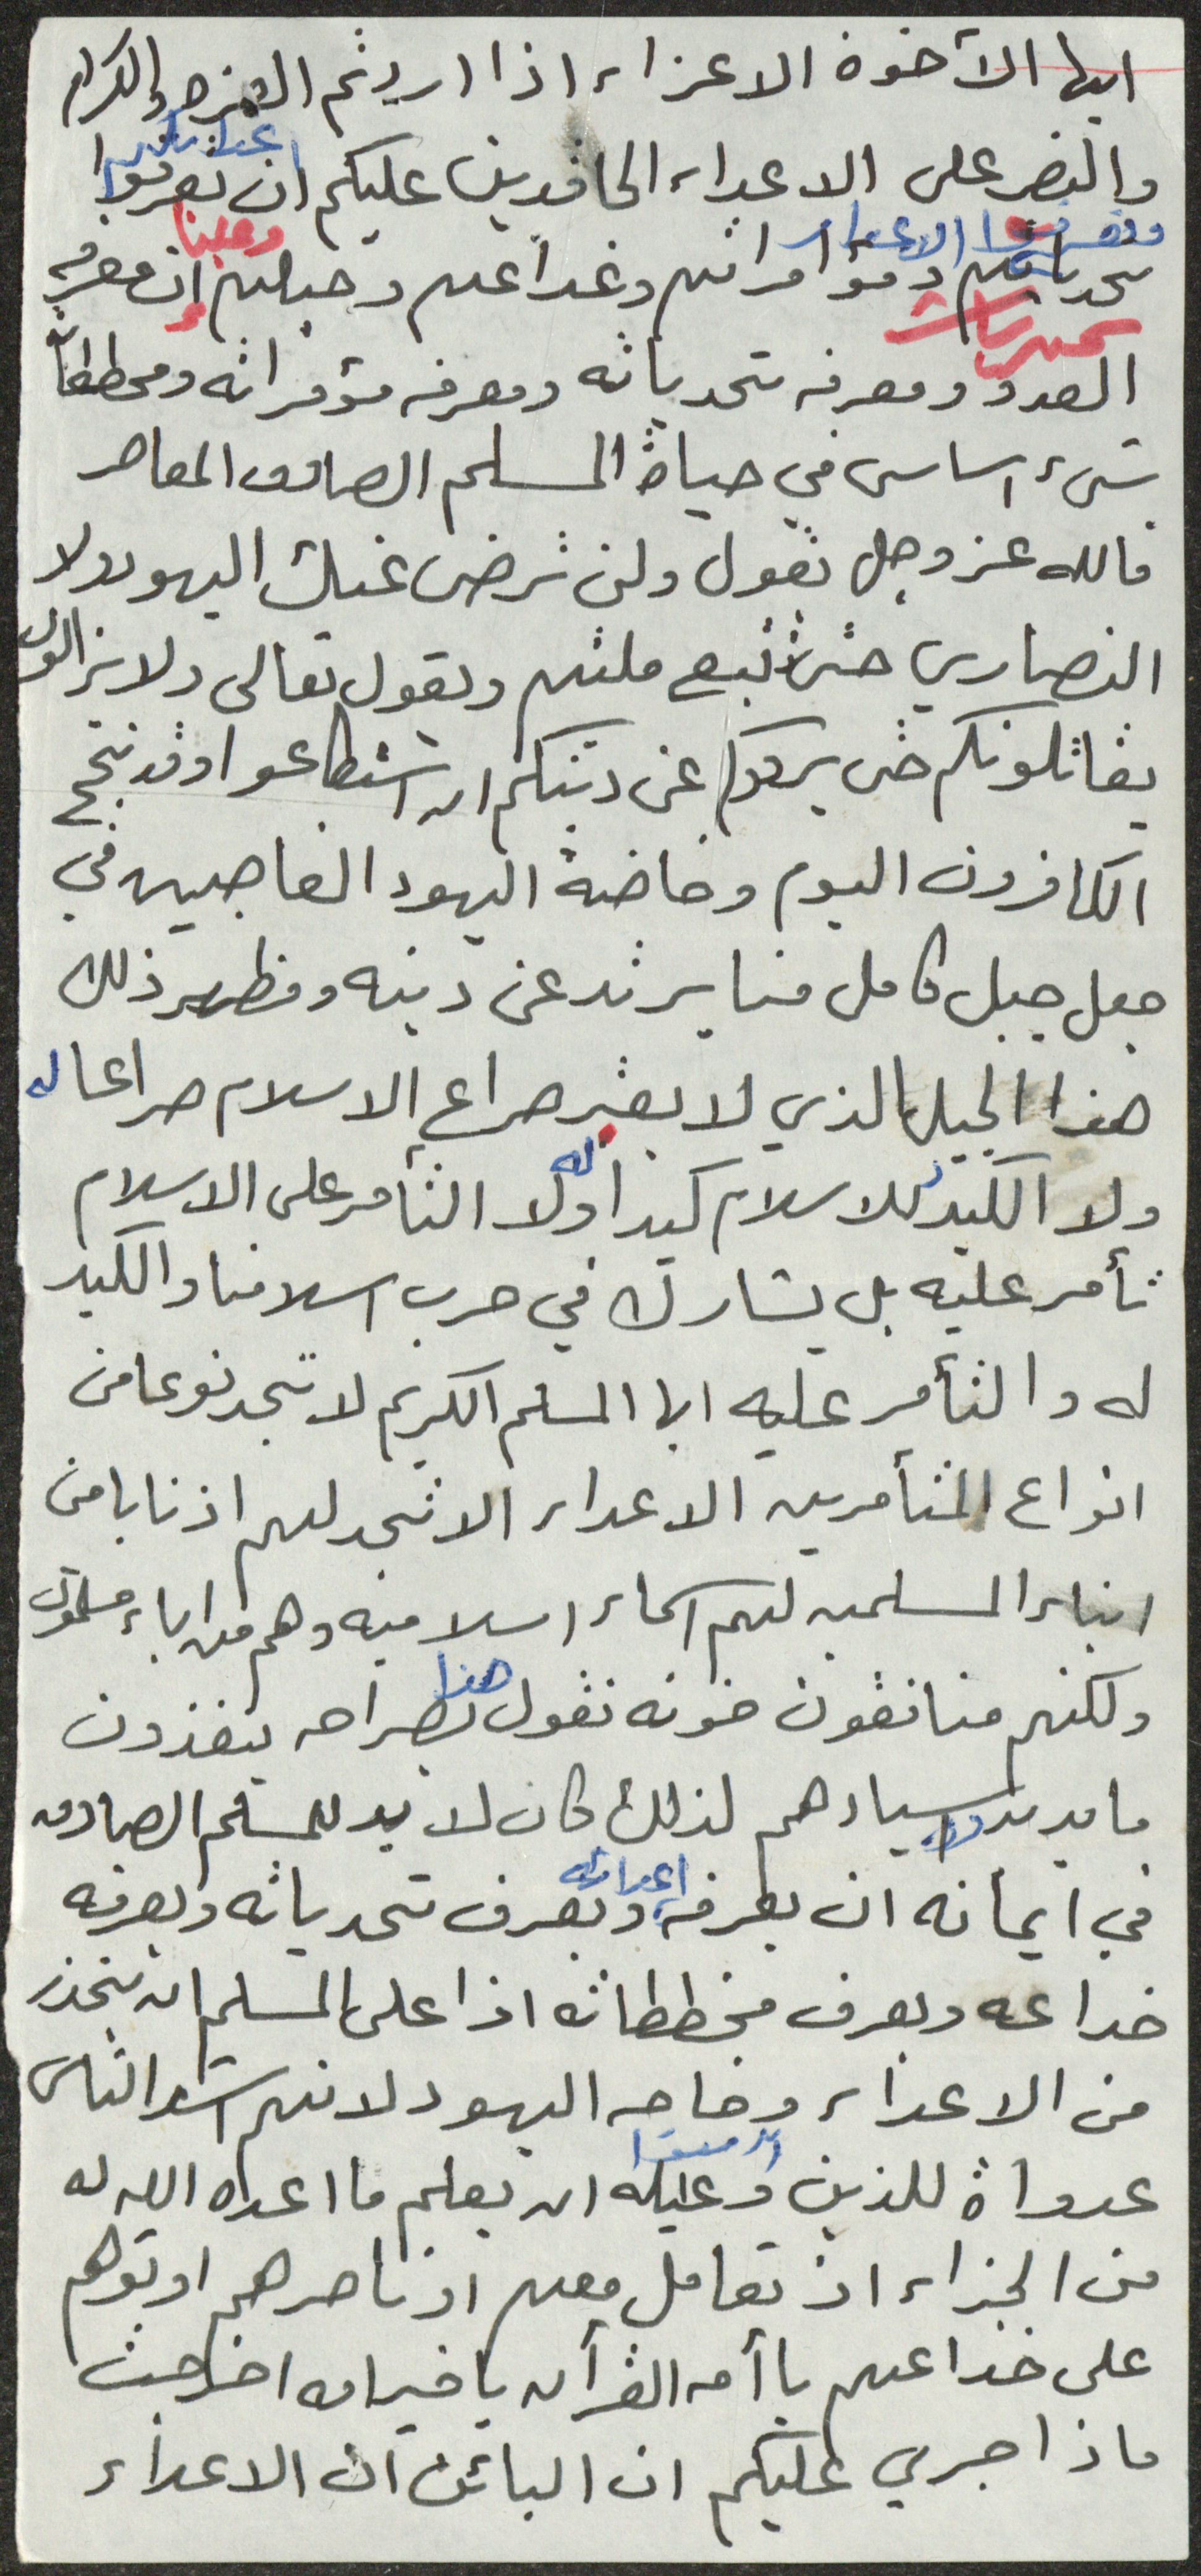 ايها الآخوة الاعزاء اذا اردتم العزه والكرامه
والنصر على الاعداء الحاقدين عليكم ان تعرفوا
تحدياتهم ومؤامراتهم وخداعهم وحيلهم ان معرفه
وعلينا
العدو ومعرفه تحدياته ومعرفه مؤمراته ومخططاته
شىء اساسى في حياة المسلم الصادق المعاصر
فالله عز وجل يقول ولن ترضى عنك اليهود ولا
النصاري حتى تتبع ملتهم ويقول تعالى ولا يزالون
يقاتلونكم حتى يردوكم عن دينكم ان استطاعوا وقد نجح
الكافرون اليوم وخاصة اليهود الغاصبين في
جعل جيل كامل منا يرتد عن دينه ومظهر ذلك
هذا الجيل الذي لا يعتبر صراع الاسلام صراعا له
ولا الكيد للاسلام كيدا له ولا التأمر على الاسلام
تأمر عليه بل يشارك في حرب اسلامنا والكيد
له والتأمر عليه ايها المسلم الكريم لا تجد نوعا من
انواع المتأمرين الاعداء الا تجد لهم اذنابا من
ابناء المسلمين لهم اسماء اسلاميه وهم من اباء مسلمون
ولكنهم منافقون خونه نقول هذا بصراحه ينفذون
ما يريد اسيادهم لذلك كان لا بد للمسلم الصادق
في ايمانه ان يعرف اعدائه ويعرف تحدياته ويعرف
خداعه ويعرف مخططاته اذا على المسلم ان يتحذر
من الاعداء وخاصه اليهود لانهم اشد الناس
عدواة للذين امنوا وعليه ان يعلم ما اعداه الله له
من الجزاء اذ تعامل معهم او ناصرهم او توهم
على خداعهم يا أمه القرآن يا خير امه اخرجت
ماذا جري عليكم ان البائن ان الاعداء